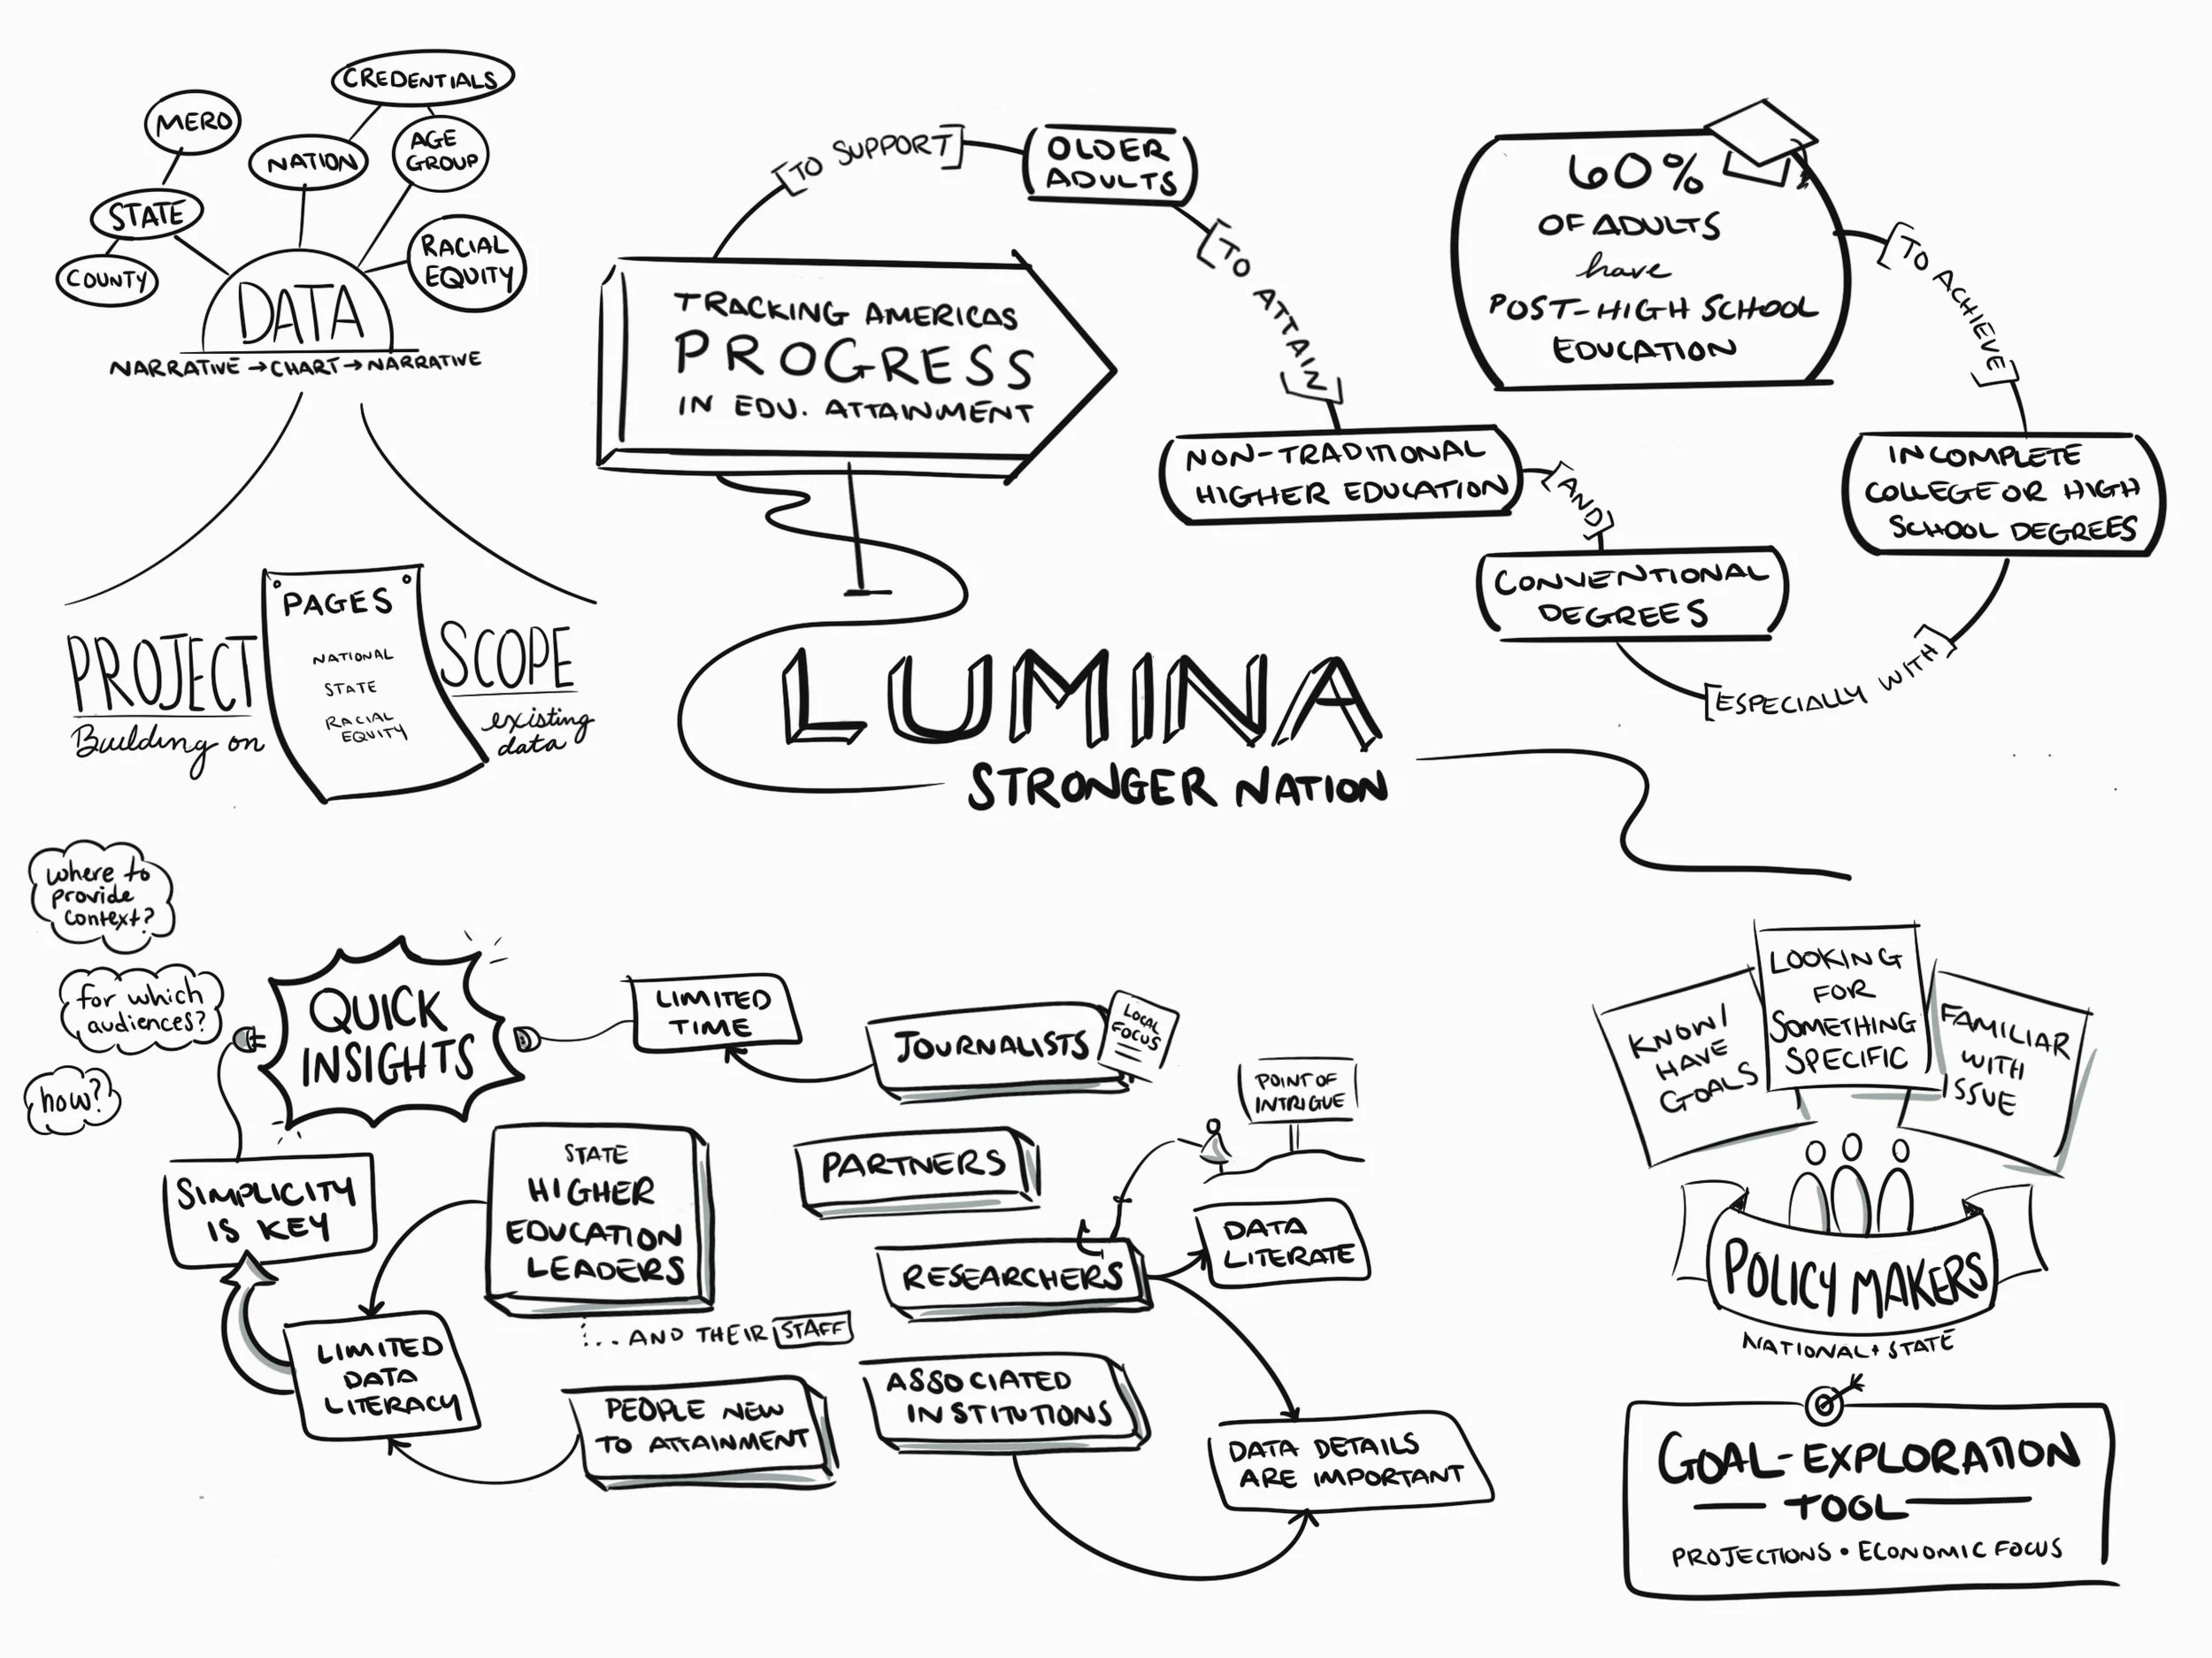 CREDENTIALS
MERO
NATION
AGE
GROUP
STATE
COUNTY
RACIAL
EQUITY
DATA
NARRATIVE → CHART → NARRATIVE
PROJECT
Building on
PAGES
NATIONAL
STATE
RACIAL
EQUITY
SCOPE
existing
data
TRACKING AMERICAS
PROGRESS
IN EDU. ATTAINMENT
[TO SUPPORT]
OLDER
ADULTS
[TO ATTAIN]
NON-TRADITIONAL
HIGHER EDUCATION
[AND]
CONVENTIONAL
DEGREES
[ESPECIALLY WITH]
INCOMPLETE
COLLEGE OR HIGH
SCHOOL DEGREES
[TO ACHIEVE]
60%
OF ADULTS
have
POST-HIGH SCHOOL
EDUCATION
LUMINA
STRONGER NATION
where to
provide
context?
for which
audiences?
how?
QUICK
INSIGHTS
SIMPLICITY
IS KEY
LIMITED
DATA
LITERACY
LIMITED
TIME
STATE
HIGHER
EDUCATION
LEADERS
... AND THEIR STAFF
PEOPLE NEW
TO ATTAINMENT
JOURNALISTS
LOCAL
FOCUS
PARTNERS
RESEARCHERS
POINT OF
INTRIGUE
DATA
LITERATE
ASSOCIATED
INSTITUTIONS
DATA DETAILS
ARE IMPORTANT
KNOW/
HAVE
GOALS
LOOKING
FOR
SOMETHING
SPECIFIC
FAMILIAR
WITH
ISSUE
POLICY MAKERS
NATIONAL + STATE
GOAL-EXPLORATION
TOOL
PROJECTIONS • ECONOMIC FOCUS